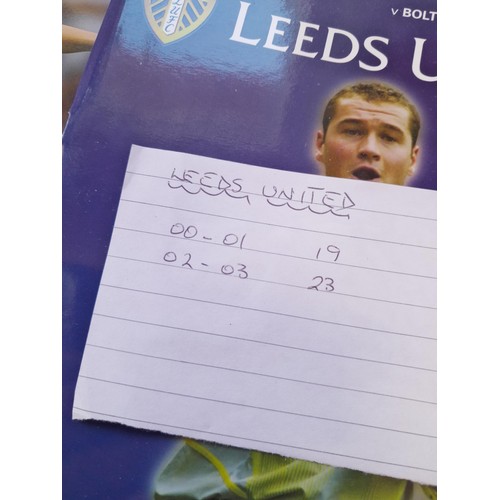 v BOLT
LEEDS U
LEEDS UNITED
00-01 19
02-03 23